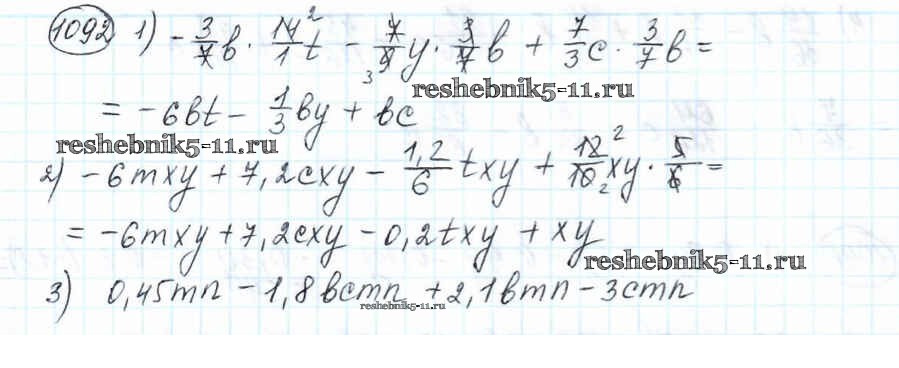 1092 1) - 3/7 в · 14/1 t - 7/9 y · 3/7 в + 7/3 c · 3/7 в =
reshebnik5-11.ru
= -6вt - 1/3 вy + вc
reshebnik5-11.ru
2) -6mxy + 7,2cxy - 1,2/6 txy + 12/10 xy · 5/6 =
= -6mxy + 7,2cxy - 0,2txy + xy
reshebnik5-11.ru
3) 0,45mn - 1,8вcmn + 2,1вmn - 3cmn
reshebnik5-11.ru